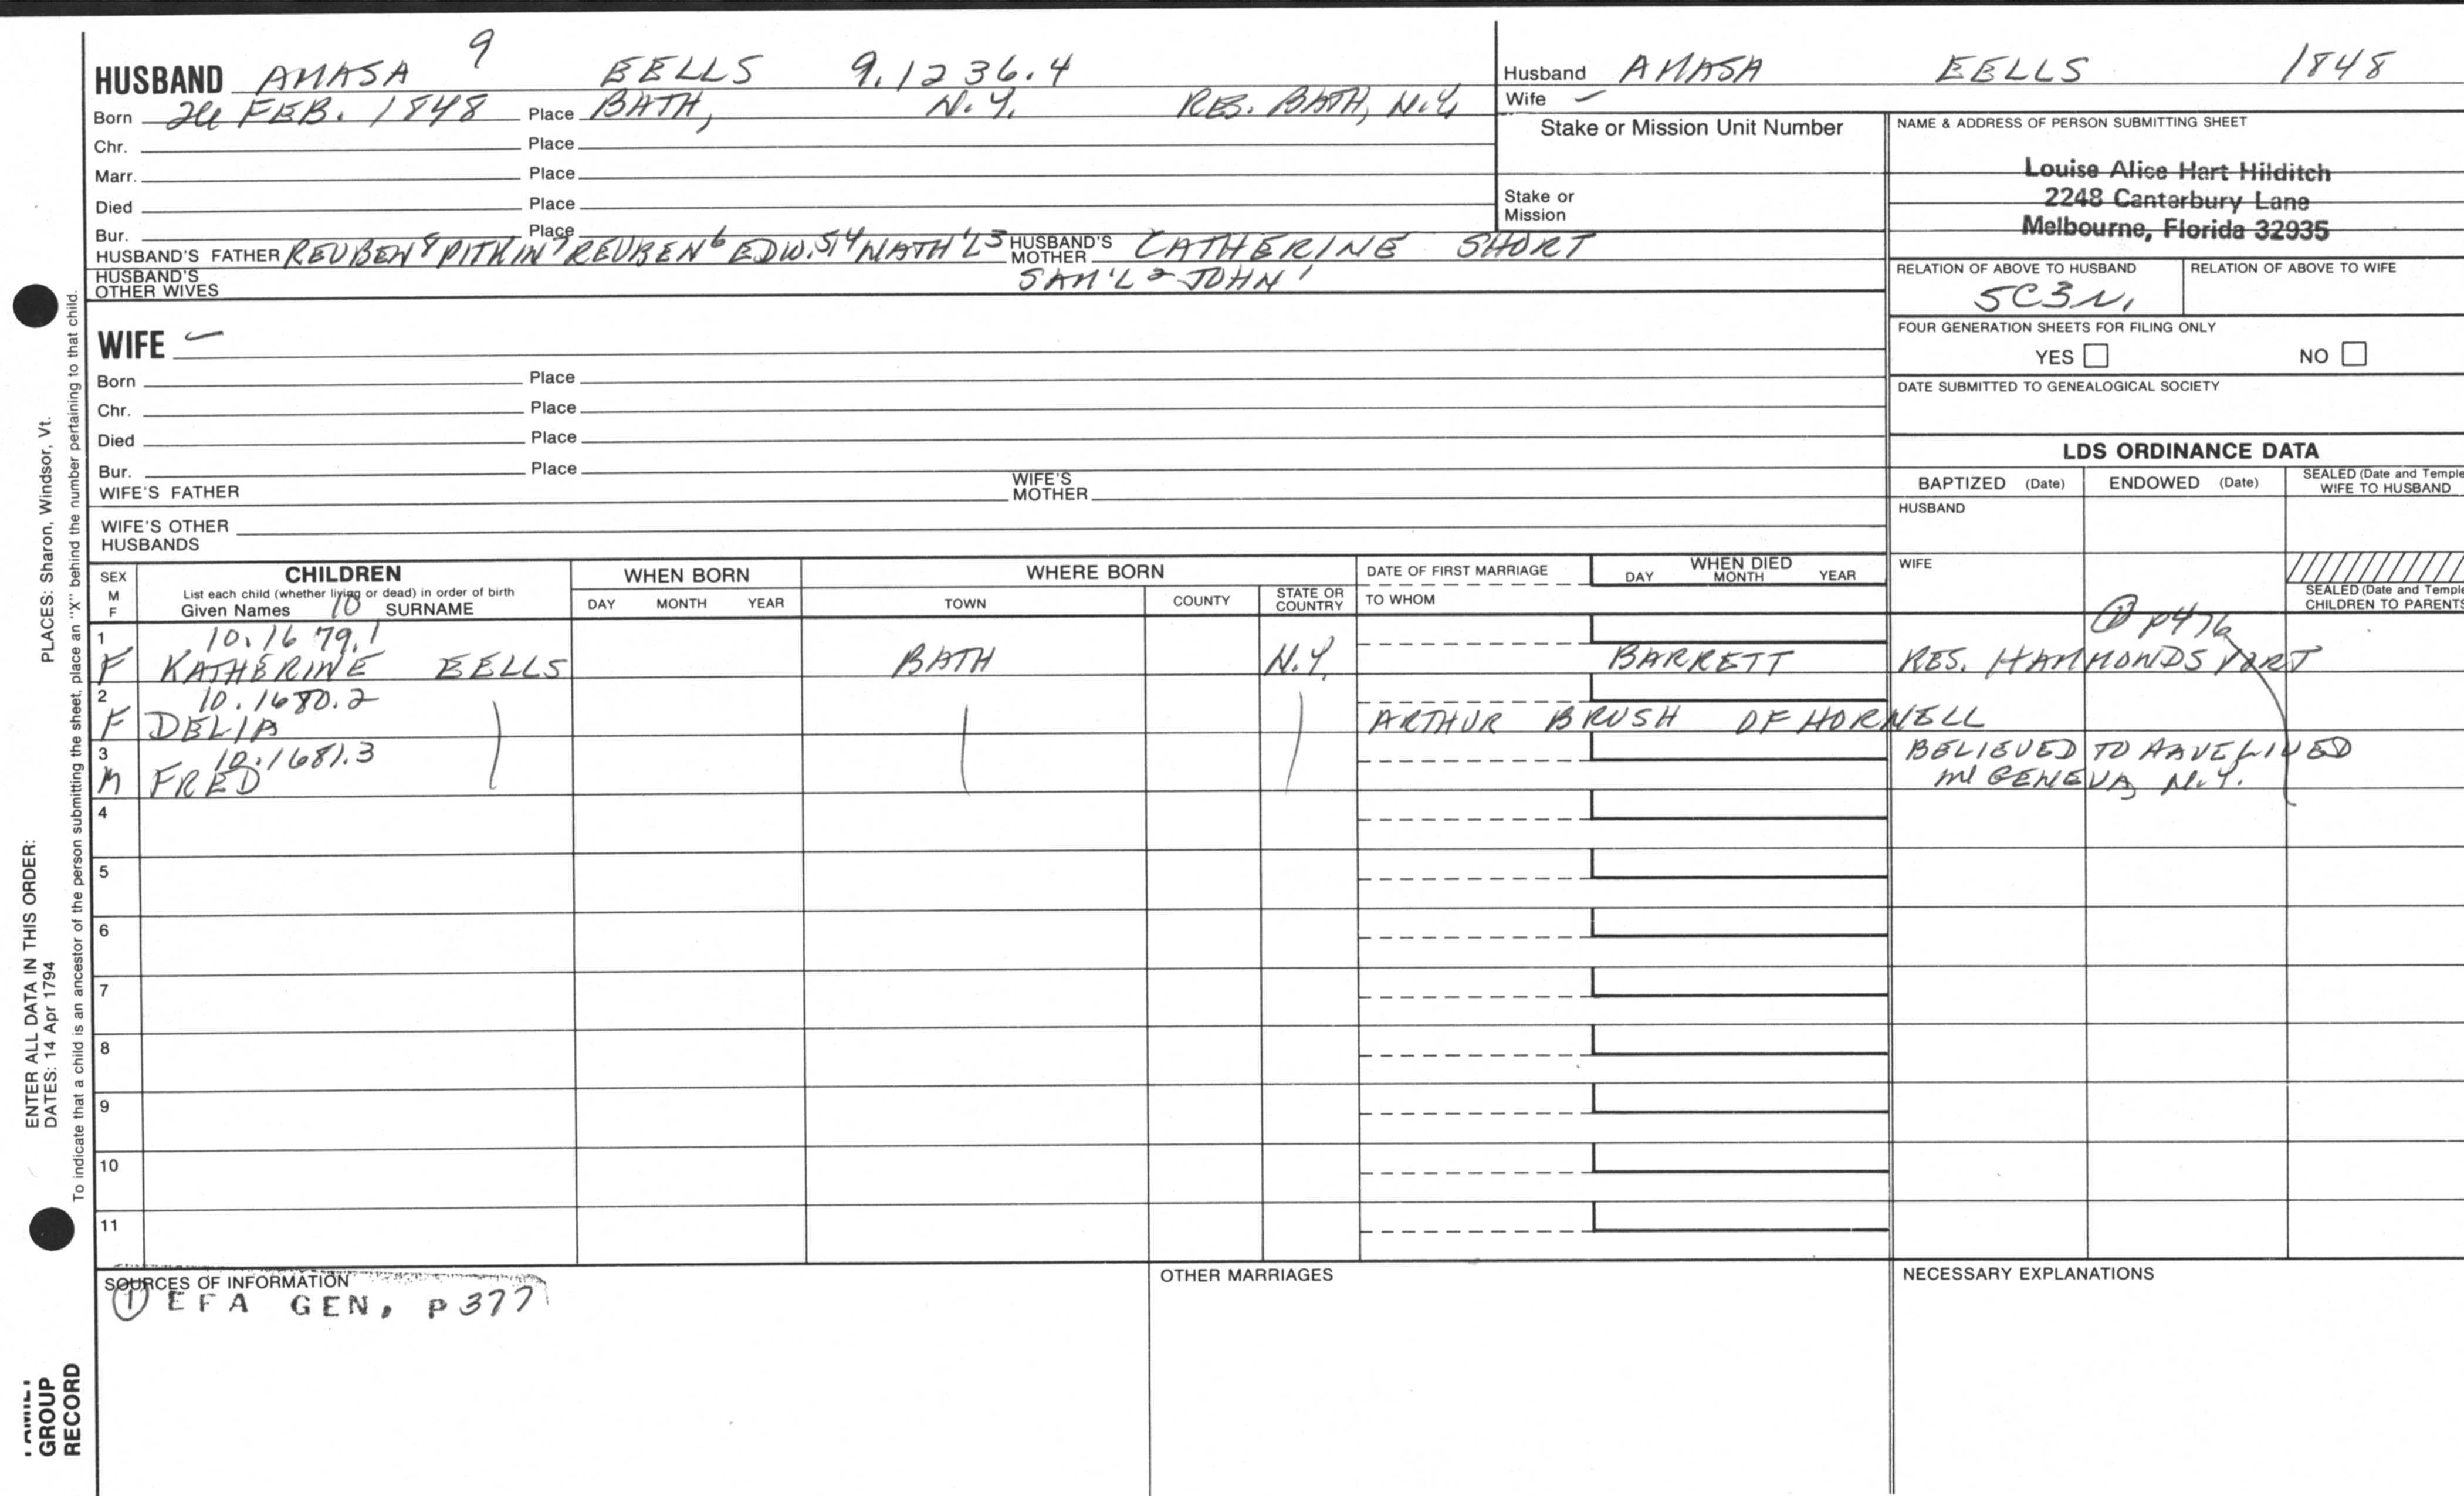 HUSBAND AMASA 9 EELLS 9.1236.4
Born FEB. 1848 Place BATH, N.Y. RES. BATH, N.Y.
Chr. Place
Marr. Place
Died Place
Bur. Place
HUSBAND'S FATHER REUBEN 8 PITKIN 7 REUBEN 6 EDW. 5,4 NATH'L 3 HUSBAND'S MOTHER CATHERINE SHORT
HUSBAND'S OTHER WIVES SAM'L 2 JOHN 1
WIFE –
Born Place
Chr. Place
Died Place
Bur. Place
WIFE'S FATHER WIFE'S MOTHER
WIFE'S OTHER HUSBANDS
Husband AMASA EELLS 1848
Wife –
Stake or Mission Unit Number
Stake or Mission
NAME & ADDRESS OF PERSON SUBMITTING SHEET
Louise Alice Hart Hilditch
2248 Canterbury Lane
Melbourne, Florida 32935
RELATION OF ABOVE TO HUSBAND RELATION OF ABOVE TO WIFE
5C3N,
FOUR GENERATION SHEETS FOR FILING ONLY
YES NO
DATE SUBMITTED TO GENEALOGICAL SOCIETY
LDS ORDINANCE DATA
BAPTIZED (Date) ENDOWED (Date) SEALED (Date and Temple WIFE TO HUSBAND
HUSBAND
WIFE
SEALED (Date and Temple CHILDREN TO PARENTS
SEX M F
CHILDREN
List each child (whether living or dead) in order of birth
Given Names 10 SURNAME
WHEN BORN
DAY MONTH YEAR
WHERE BORN
TOWN COUNTY STATE OR COUNTRY
DATE OF FIRST MARRIAGE
TO WHOM
WHEN DIED
DAY MONTH YEAR
1 10.1679.1 p476
F KATHERINE EELLS BATH N.Y. BARRETT RES. HAMMONDSPORT
2 10.1680.2
F DELIA ARTHUR BRUSH OF HORNELL
3 10.1681.3 BELIEVED TO HAVE LIVED
M FRED GENEVA, N.Y.
4
5
6
7
8
9
10
11
SOURCES OF INFORMATION
① EFA GEN, P377
OTHER MARRIAGES
NECESSARY EXPLANATIONS
PLACES: Sharon, Windsor, Vt.
To indicate that a child is an ancestor of the person submitting the sheet, place an "X" behind the number pertaining to that child.
ENTER ALL DATA IN THIS ORDER:
DATES: 14 Apr 1794
GROUP
RECORD